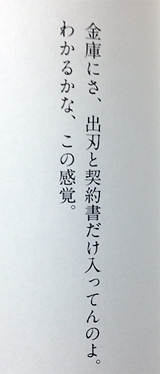 金庫にさ、出刃と契約書だけ入ってんのよ。
わかるかな、この感覚。